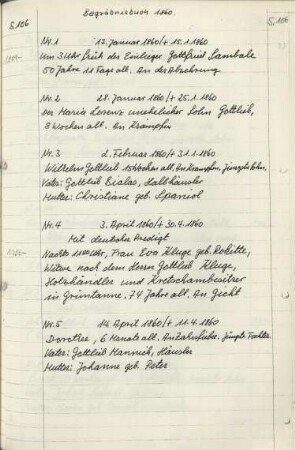 Begräbnisbuch 1860
S. 106
S. 106
Nr. 1 12. Januar 1860/+ 15.1.1860
Um 3 Uhr früh der Einlieger Gottfried Sambale
50 Jahre 11 Tage alt. An der Abzehrung
Nr. 2 28. Januar 1860/+ 25.1.1860
Der Maria Lorenz unehelicher Sohn Gottlieb,
8 Wochen alt. An Krämpfen
Nr. 3 2. Februar 1860/+ 31.1.1860
Wilhelm Gottlieb 15 Wochen alt. An Krämpfen, jüngste Sohn.
Vater: Gottlieb Bialas, Halbhäusler
Mutter: Christiane geb. Spaniol
Nr. 4 3. April 1860/+ 30.4.1860
Mit deutsche Predigt
Nachts 11 00 Uhr, Frau Eva Kluge geb. Rokitte,
Witwe nach dem Herrn Gottlieb Kluge,
Holzhändler und Kretschambesitzer
in Grüntanne. 74 Jahre alt. An Gicht
Nr. 5 14. April 1860/+ 11.4.1860
Dorothee, 6 Monate alt. An Zahnfieber. Jüngste Tochter
Vater: Gottlieb Mannich, Häusler
Mutter: Johanne geb. Peter